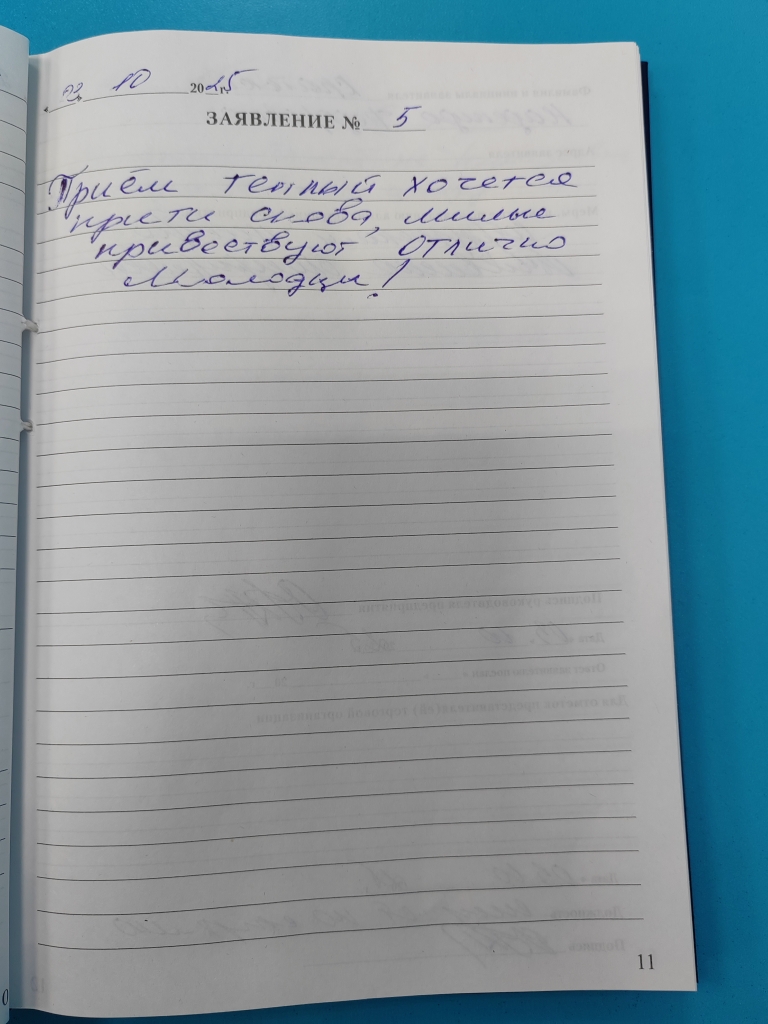 «03» 10 2025 г.
ЗАЯВЛЕНИЕ № 5
Приём теплый хочется
прити снова, милые
привествуют отлично
Молодцы!
11